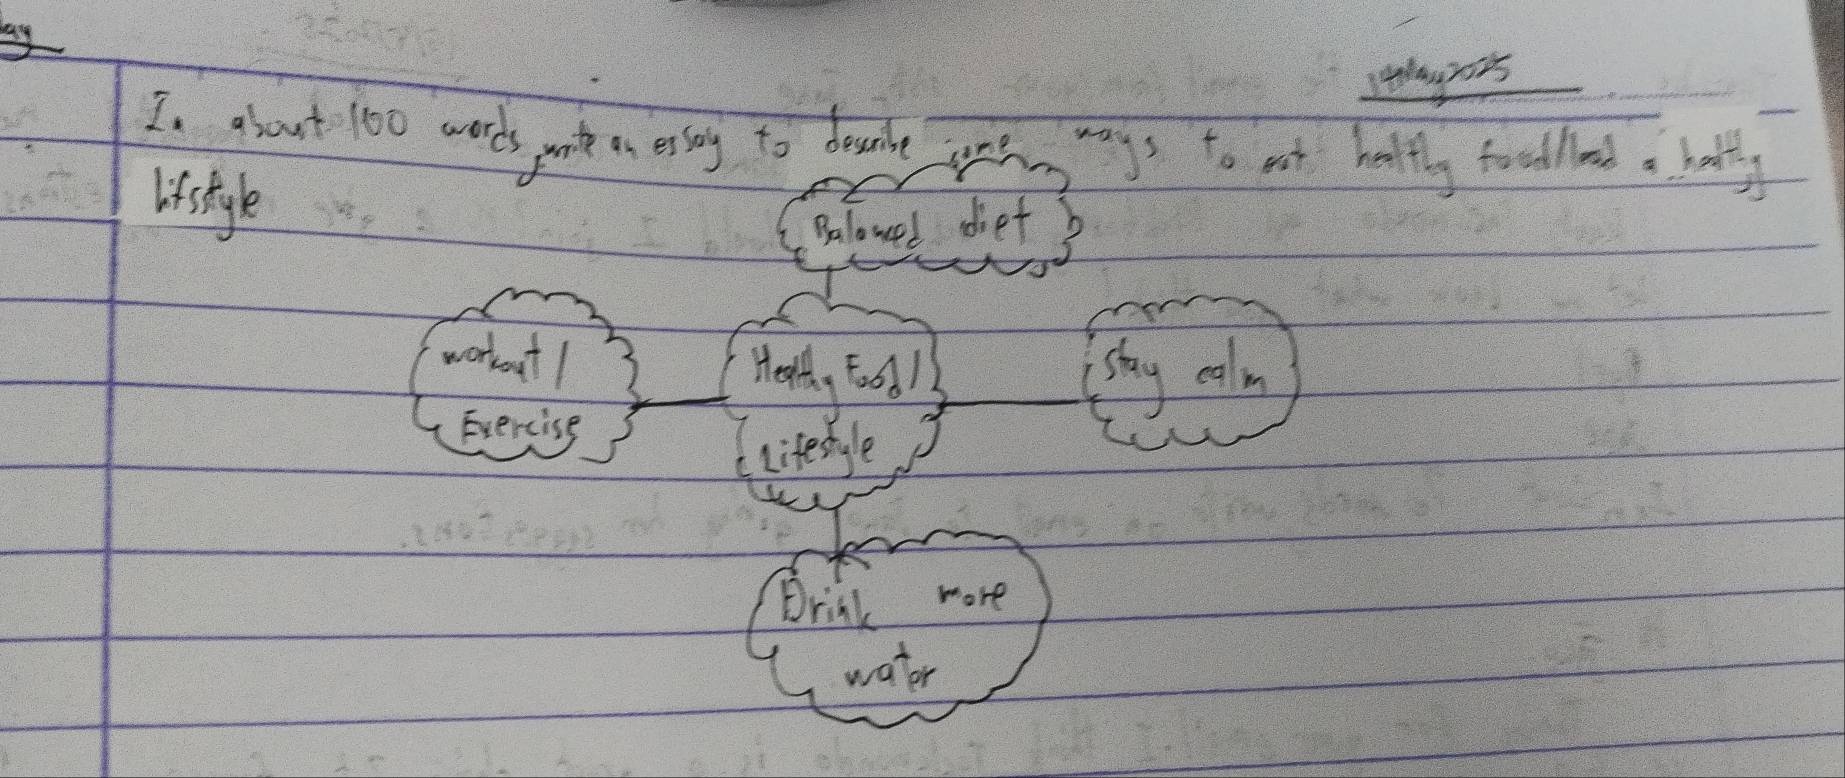 In about 100 words, write an essay to describe some ways to eat healthy food/lead a healthy
lifstyle
Balanced diet
workout /
Exercise
Healthy Food /
Lifestyle
Stay calm
Drink more
water